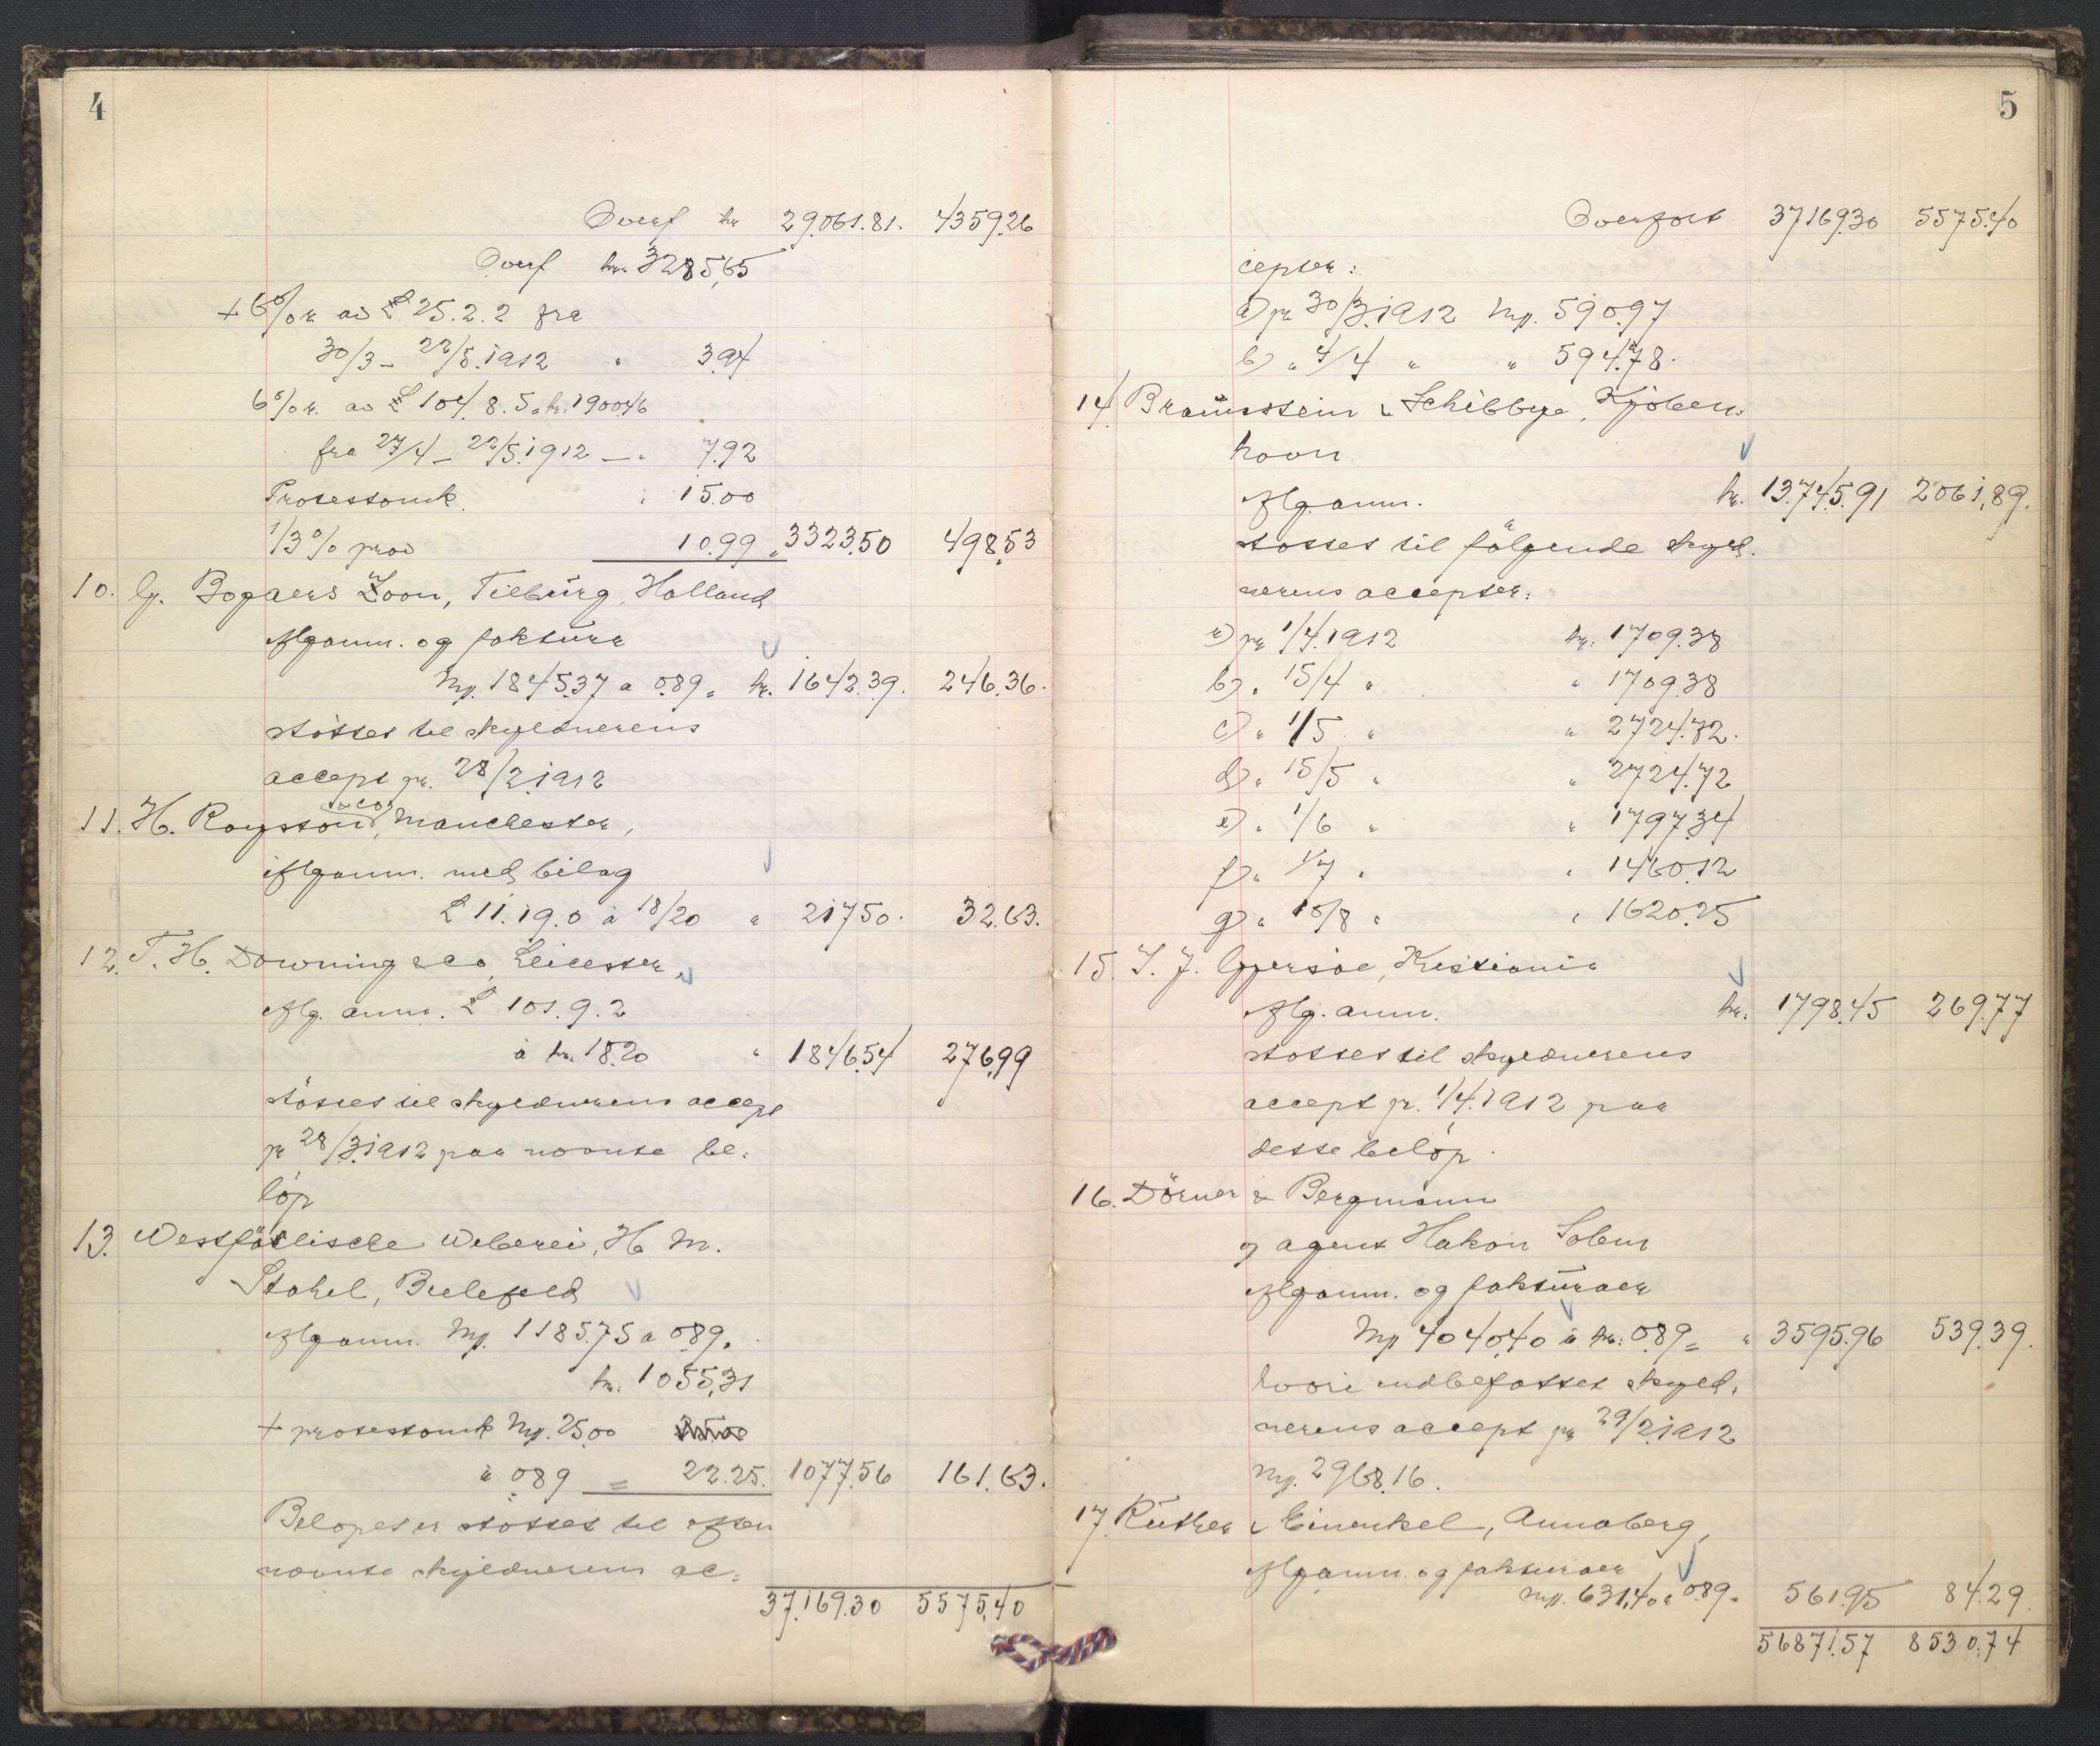 4
Overf kr 29.061.81. 4359.26
Overf kr. 3285,65
+ 6% r. av £ 25.2.2 fra
30/3 - 22/5.1912 " 3.94
6% r. av £ 104.8.5 = kr. 1900.46
fra 27/4 - 22/5.1912 — " 7.92
Protestomk. " 15.00
1/3 % prov 10.99 = 3323.50 498.53
10. G. Bogaers Zoon, Tilburg, Holland
Ifl. anm. og faktura
Mk. 1845.37 a 0.89 = kr. 1642.39. 246.36.
støttet til skyldnerens
accept pr. 28/2.1912
11. H. Roystond & Co, Manchester,
Ifl. anm. med bilag
£ 11.19.0 à 18/20 " 217.50. 32.63.
12. T. H. Downing & Co, Leicester,
Ifl. anm. £ 101.9.2
à kr. 18.20 " 1846.54 276.99
støttet til skyldnerens accept
pr 28/3.1912 paa nævnte be-
løp
13. Westfälische Weberei, H. M.
Stahel, Bielefeld
Ifl. anm. Mk. 1185.75 a 0.89.
kr. 1055,31
+ protestomk Mk. 25.00
à 0.89 = 22.25. 1077.56 161.63.
Beløpet er støttet til oven
nævnte skyldnerens ac-
37.169.30 5575,40
5
Overført 37169.30 5575.40
cepter:
a) pr 30/3.1912 Mk. 590.97
b) " 4/4 " " 594.78.
14. Braunstein & Schibbye, Kjøben-
havn
Ifl. anm. kr. 13.745.91 2061,89.
støttet til følgende skyld-
nerens accepter:
a) pr 1/4.1912 kr. 1709.38
b) " 15/4 " " 1709.38
c) " 1/5 " " 2724.72.
d) " 15/5 " " 2724.72
e) " 1/6 " " 1797.34
f) " 1/7 " " 1460.12
g) " 15/8 " " 1620.25
15. I. J. Gjersøe, Kristiania
Ifl. anm. kr. 1798.45 269.77
støttet til skyldnerens
accept pr. 1/4.1912 paa
dette beløp.
16. Dörner & Bergmann
v agent Hakon Solem
Ifl. anm. og fakturaer
Mk 4040.40 à kr. 0.89 = " 3595.96 539.39.
hvori indbefattet skyld-
nerens accept pr 29/2.1912
Mk. 2968.16.
17. Rüther & Einenkel, Annaberg,
Ifl. anm. og fakturaer
Mk. 631,40 à 0.89 = 561.95 84.29.
56871.57 8530.74